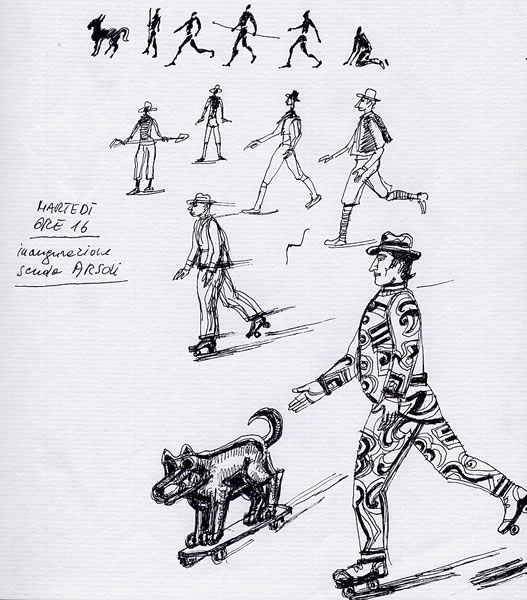 MARTEDÌ
ORE 16
inaugurazione
scuola ARSOLI